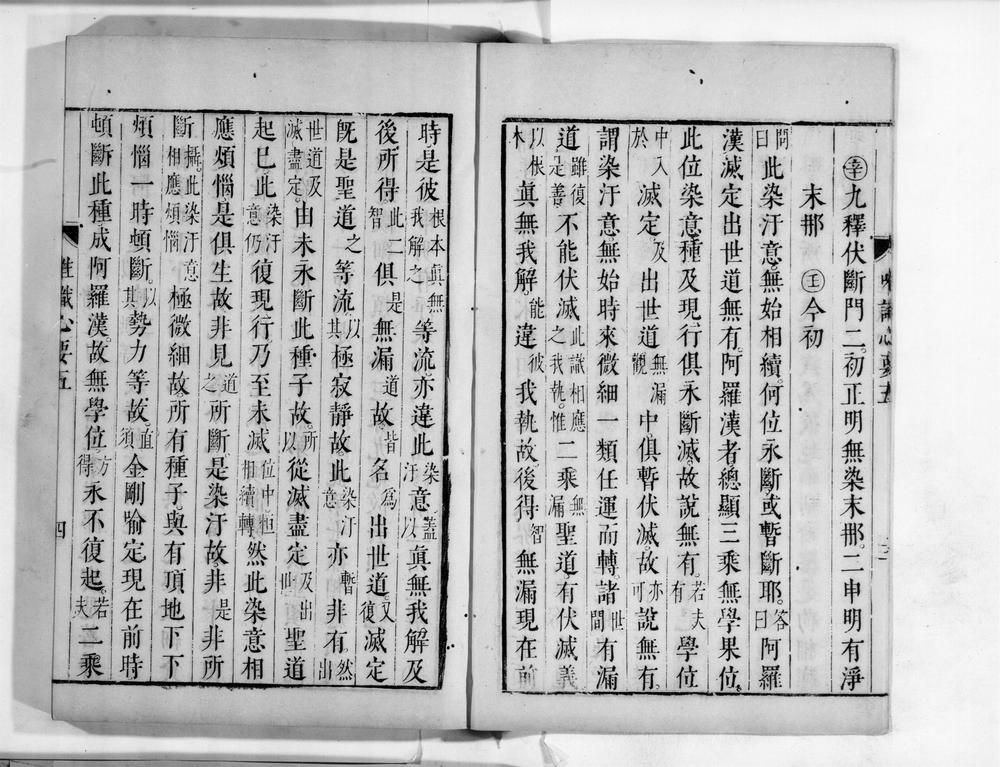 唯識心要五
㊛九釋伏斷門二。初正明無染末那。二申明有淨
末那 壬今初
問曰此染汙意。無始相續。何位永斷或暫斷耶。答曰阿羅
漢滅定出世道無有。阿羅漢者總顯三乘無學果位。
此位染意種及現行俱永斷滅。故說無有。若夫有學位
中入於滅定及出世道無漏觀中俱暫伏滅。故亦可說無有。
謂染汙意無始時來微細一類任運而轉。諸世間有漏
道雖復是善不能伏滅此識相應之我執。惟二乘無漏聖道。有伏滅義
以根本眞無我解。能違彼我執故。後得智無漏現在前
時是彼根本眞無我解之等流。亦違此染汙意。蓋以眞無我解及
後所得智此二俱是無漏道故。皆名為出世道。又復滅定
旣是聖道之等流。以其極寂靜故。此染汙意亦暫非有。然出
世道及滅盡定。由未永斷此種子故。所以從滅盡定及出世聖道
起已此染汙意仍復現行。乃至未滅位中恒相續轉然此染意相
應煩惱。是俱生故。非見道之所斷。是染汙故。非是非所
斷攝。此染汙意相應煩惱極微細故。所有種子。與有頂地下下
煩惱一時頓斷。以其勢力等故。直須金剛喻定現在前時
頓斷此種成阿羅漢。故無學位。方得永不復起。若夫二乘
唯識心要五 四